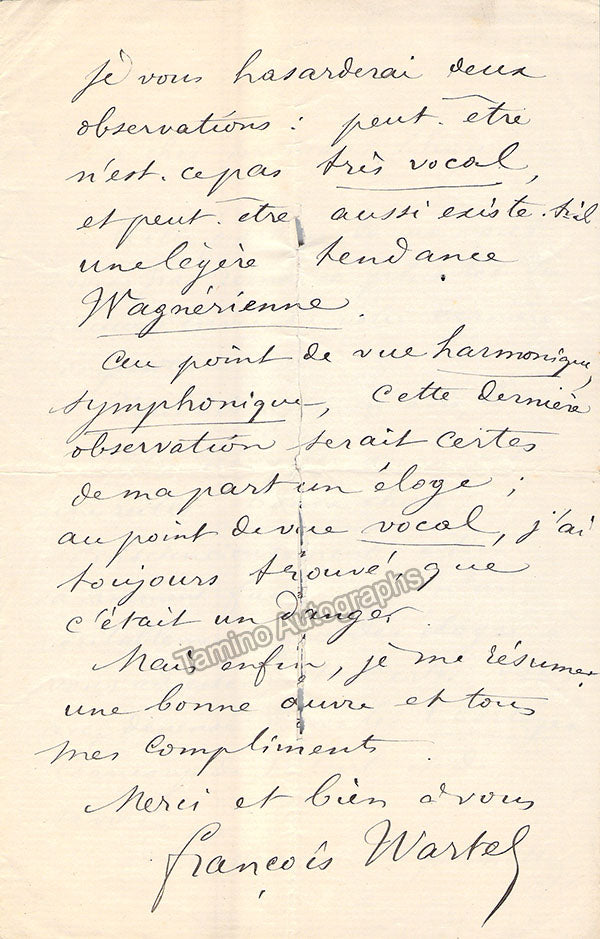 je vous hasarderai deux
observations : peut-être
n'est-ce pas très vocal,
et peut-être aussi existe-t-il
une légère tendance
Wagnérienne.
Au point de vue harmonique,
symphonique, cette dernière
observation serait certes
de ma part un éloge ;
au point de vue vocal, j'ai
toujours trouvé, que
c'était un danger.
Tamino Autographs
Mais enfin, je me résume,
une bonne œuvre et tous
mes compliments.
Merci et bien à vous
François Wartel